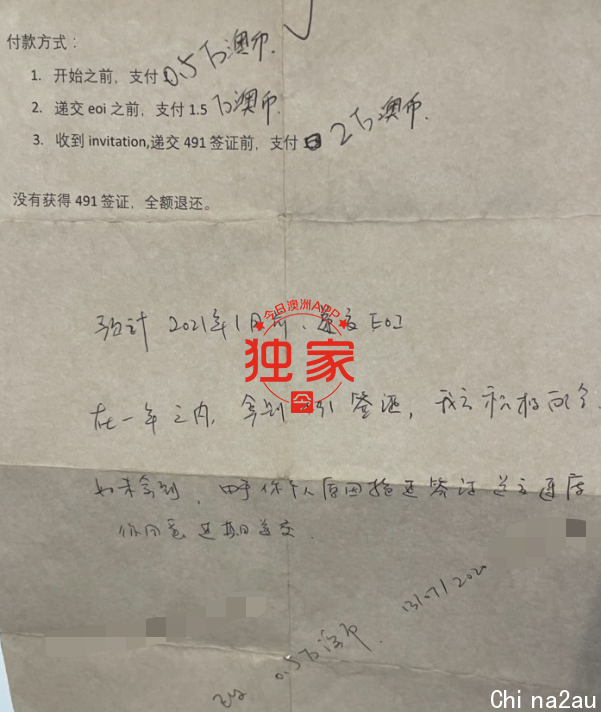 付款方式：
1. 开始之前，支付 0.5万澳币.
2. 递交 eoi 之前，支付 1.5 万澳币.
3. 收到 invitation,递交 491 签证前，支付 2万澳币.
没有获得 491 签证，全额退还。
预计 2021年1月前，递交 EOI
今日澳洲APP
独家
在一年之内，拿到 签证，
如果拿到，由于你个人原因拖延签证递交速度
你同意延期递交.
0.5万澳币. 13/07/2020
Chi na2au